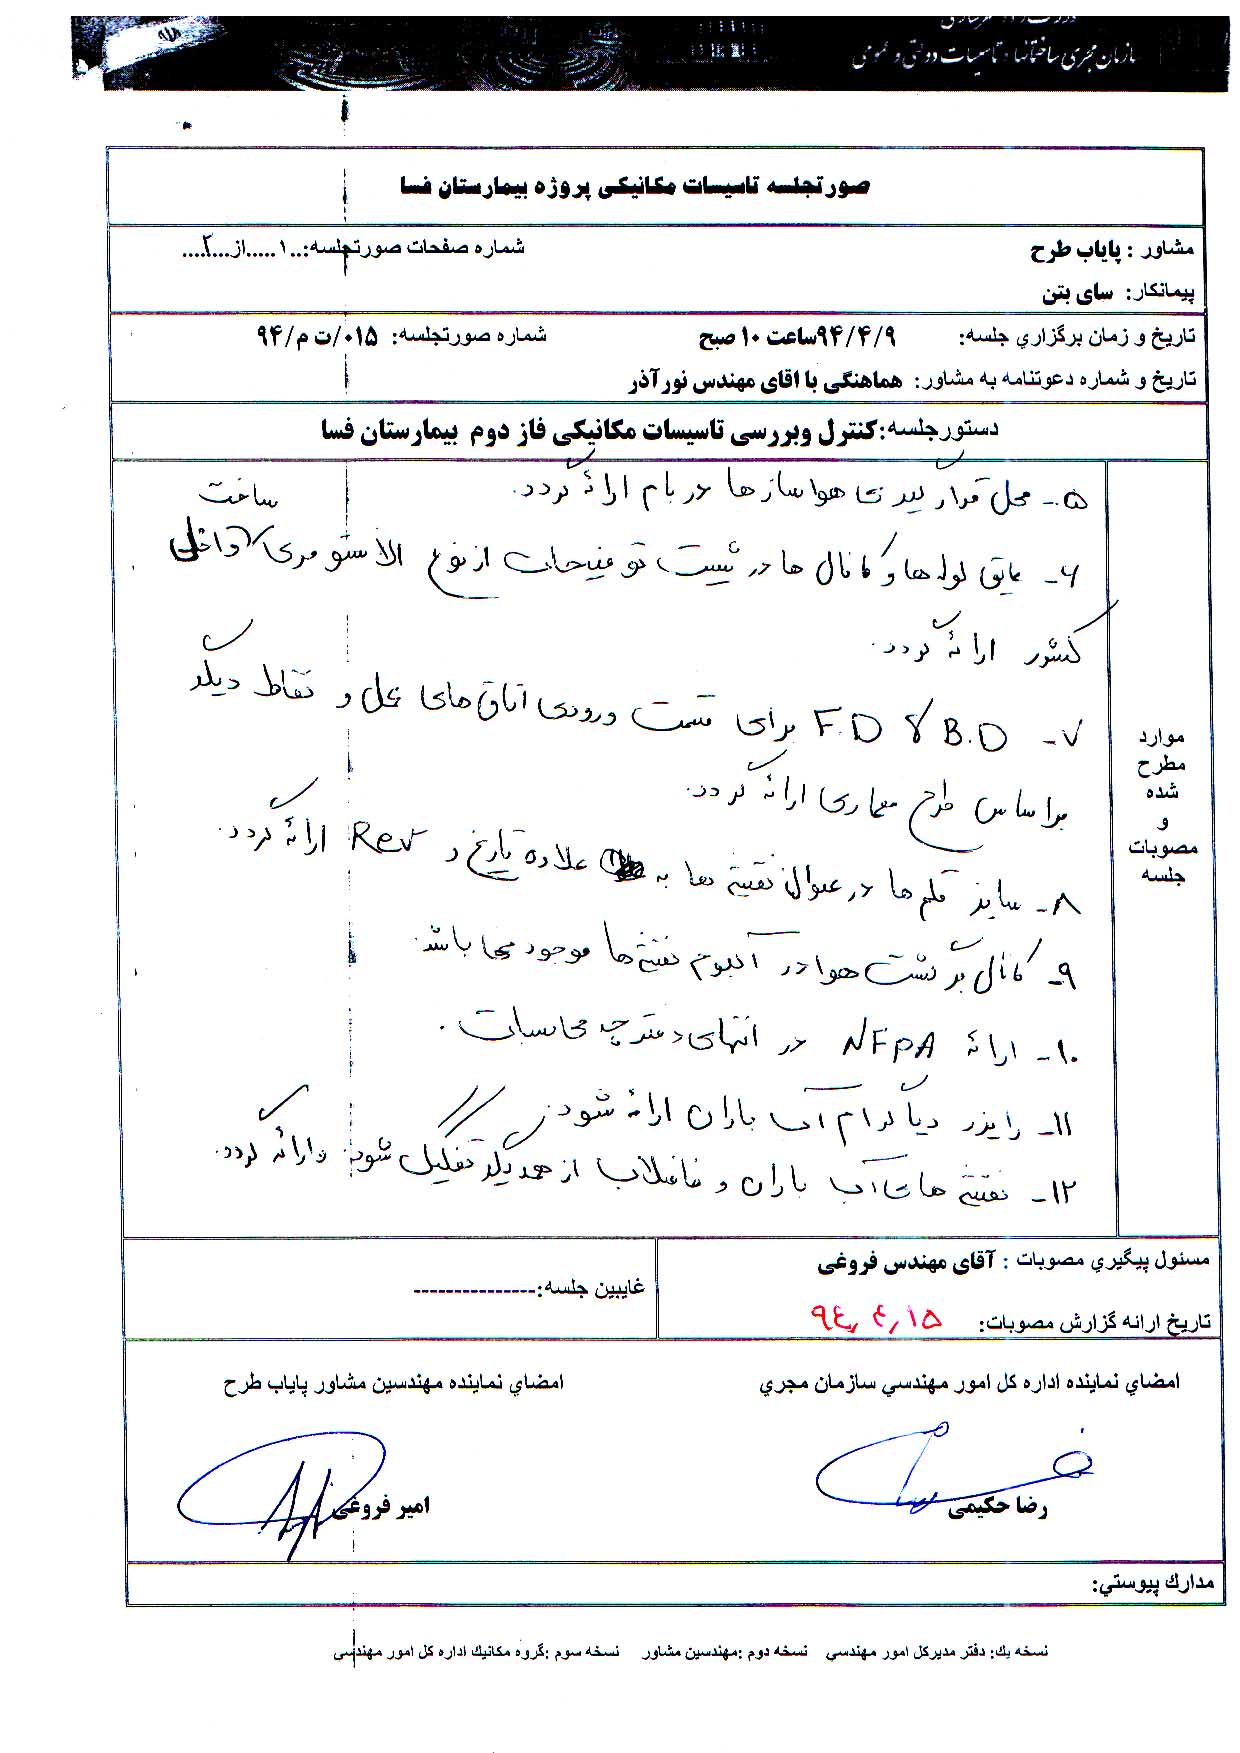 سازمان مجری ساختمانها و تاسیسات دولتی و عمومی
صورتجلسه تاسیسات مکانیکی پروژه بیمارستان فسا
مشاور : پایاب طرح
شماره صفحات صورتجلسه:..۱.....از...۲....
پیمانکار: سای بتن
تاریخ و زمان برگزاري جلسه: ۹۴/۴/۹ساعت ۱۰ صبح
شماره صورتجلسه: ۰۱۵/ت م/۹۴
تاریخ و شماره دعوتنامه به مشاور: هماهنگی با اقای مهندس نورآذر
دستورجلسه:کنترل وبررسی تاسیسات مکانیکی فاز دوم بیمارستان فسا
موارد
مطرح
شده
و
مصوبات
جلسه
۵- محل قرار گیری هواسازها در بام ارائه گردد.
۶- عایق لوله ها و کانال ها در لیست توضیحات از نوع الاستومری ساخت داخل
کشور ارائه گردد.
۷- F.D & B.D برای قسمت ورودی اتاق های عمل و نقاط دیگر
براساس طرح معماری ارائه گردد.
۸- سایز قلم ها در عنوان نقشه ها به علاوه تاریخ و Rev ارائه گردد.
۹- کانال برگشت هوا در آلبوم نقشه ها موجود می باشد.
۱۰- ارائه NFPA در انتهای دفترچه محاسبات.
۱۱- رایزر دیاگرام آب باران ارائه شود.
۱۲- نقشه های آب باران و فاضلاب از همدیگر تفکیک شود و ارائه گردد.
مسئول پیگیري مصوبات : آقای مهندس فروغی
غایبین جلسه:---------------
تاریخ ارائه گزارش مصوبات: ۹۴,۴,۱۵
امضاي نماینده اداره کل امور مهندسي سازمان مجري
امضاي نماینده مهندسین مشاور پایاب طرح
رضا حکیمی
امیر فروغی
مدارك پیوستي:
نسخه یك: دفتر مدیرکل امور مهندسي نسخه دوم :مهندسین مشاور نسخه سوم :گروه مکانیك اداره کل امور مهندسي